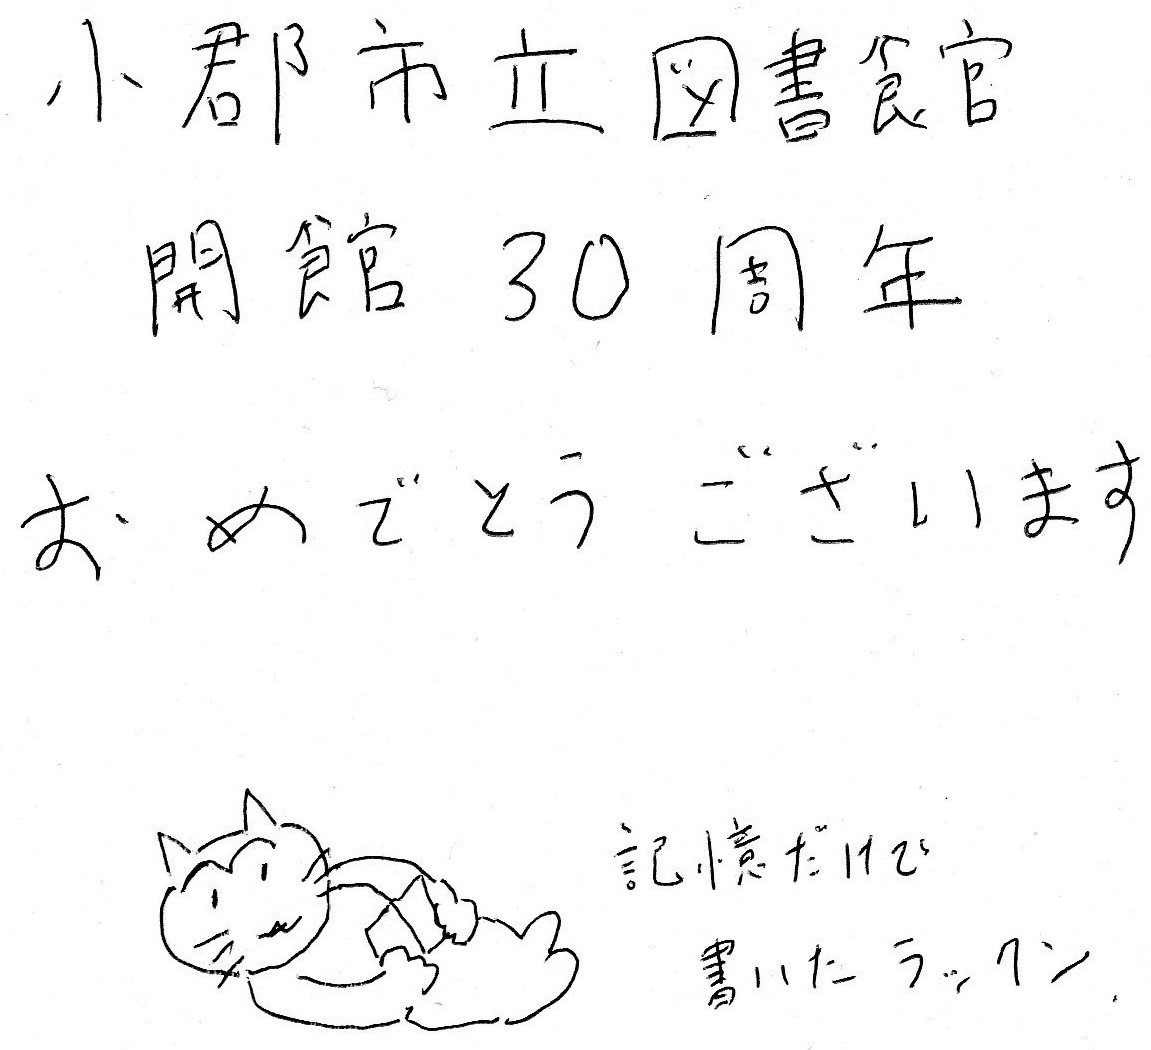 小郡市立図書館
開館30周年
おめでとうございます
記憶だけで
書いたラックン.